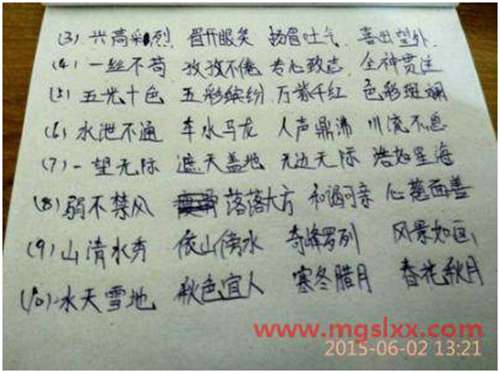 (3) 兴高彩烈 眉开眼笑 扬眉吐气 喜出望外
(4) 一丝不苟 孜孜不倦 专心致志 全神贯注
(5) 五光十色 五彩缤纷 万紫千红 色彩斑斓
(6) 水泄不通 车水马龙 人声鼎沸 川流不息
(7) 一望无际 遮天盖地 无边无际 浩如星海
(8) 弱不禁风 落落大方 和谒可亲 心慈面善
(9) 山清水秀 依山傍水 奇峰罗列 风景如画
(10) 水天雪地 秋色宜人 寒冬腊月 春花秋月
www.mgslxx.com
2015-06-02 13:21